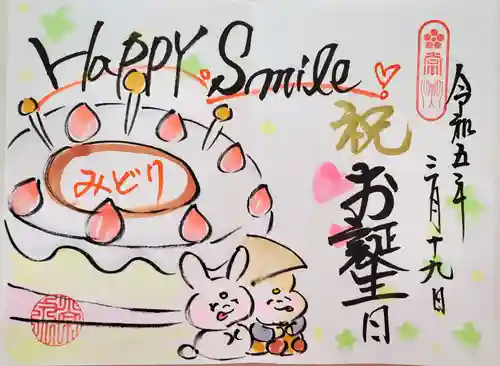 Happy Smile
みどり
祝
お誕生日
令和五年
三月十九日